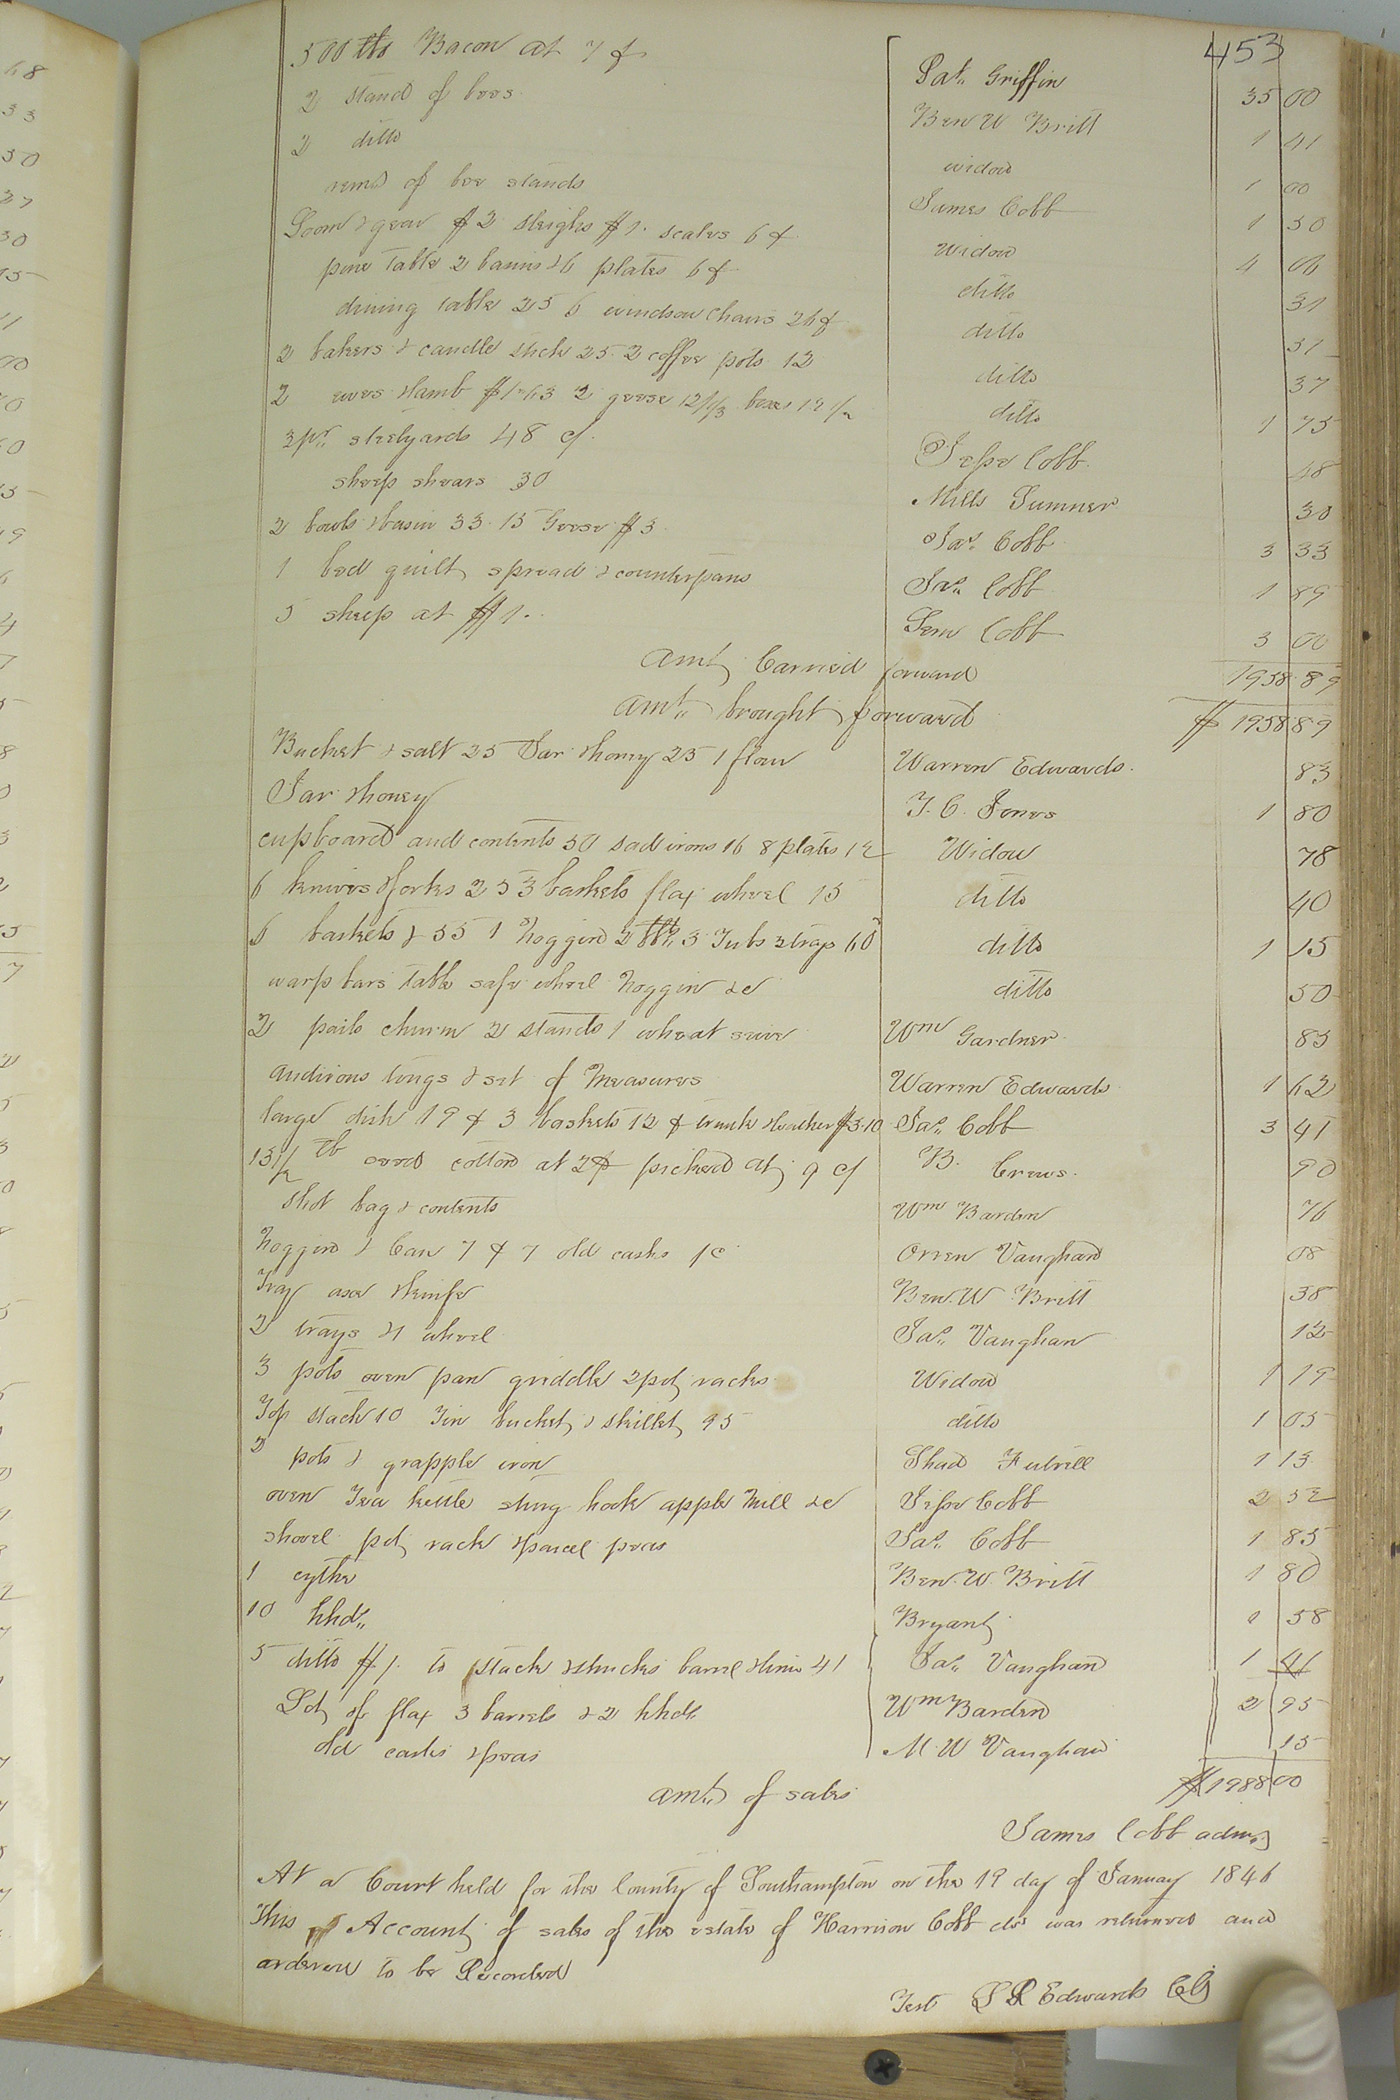 453
500 lbs Bacon at 7 ¢ Sal. Griffin 35 00
2 stand of bees Ben W Britt 1 41
2 ditto widow 1 00
remd of bee stands James Cobb 1 50
Loom & gear $2 sleighs $1. scales 6 ¢ Widow 4 06
pine table 2 basins & 6 plates 6 ¢ ditto 31
dining table 25 6 windsor chairs 26 ¢ ditto 51
2 bakers & candle stick 25. 2 coffee pots 12 ditto 37
2 ewes & lamb $1.63 2 geese 12 1/2 boxes 12 1/2 ditto 1 75
3 pr. stelyards 48 c/. Jesse Cobb 48
sheep shears 30 Mills Sumner 30
2 bowls & basin 33. 15 Geese $3 Jas. Cobb 3 33
1 bed quilt, spread & counterpane Jas. Cobb 1 89
5 sheep at $1. Lem Cobb 3 00
Amt, Carried forward 1958 89
Amt. brought forward $ 1958 89
Bucket & salt 25 Jar & honey 25 1 flour Warren Edwards. 83
Jar & honey T. C. Jones 1 80
cupboard and contents 50 sad irons 16 8 plates 12 Widow 78
6 knives & forks 25 3 baskets flax wheel 15 ditto 40
6 baskets & 55 1 Noggin 2 3 Tubs 2 trays 60 ditto 1 15
warp bars table safe wheel Noggin &c ditto 50
2 pails churn 2 stands 1 wheat sieve Wm Gardner 85
andirons tongs & set of Measures Warren Edwards 1 62
large dish 19 ¢ 3 baskets 12 ¢ trunk & leather $3.10 Jas. Cobb 3 41
13 1/2 lb seed cotton at 2¢ picked at 9 c/ B. Crews. 90
Shot bag & contents Wm Barden 76
Noggin & Can 7 ¢ 7 old casks 1c Orren Vaughan 08
Tray axe & knife Ben. W. Britt 38
2 trays & 1 wheel Jas. Vaughan 12
3 pots oven pan griddle 2 pot racks Widow 1 19
Top stack 10 Tin bucket, & skillet, 95 ditto 1 05
2 pots & grapple iron Shad Futrill 1 13
oven Tea kettle sling hook apple Mill &c Jesse Cobb 2 52
shovel pot rack & parcel peas Jas. Cobb 1 85
1 cythe Ben. W. Britt 1 80
10 hhds. Bryant 1 58
5 ditto $1. to stack & shucks barrel & lime 41 Jas. Vaughan 1 41
Lot of flax 3 barrels & 2 hhds Wm Barden 2 95
old casks & peas M. W Vaughan 15
amt. of sales $1988 00
James Cobb admr.
At a Court held for the County of Southampton on the 19 day of January 1846
This Account of sales of the estate of Harrison Cobb decd was returned and
ordered to be Recorded
Test L R Edwards Clk